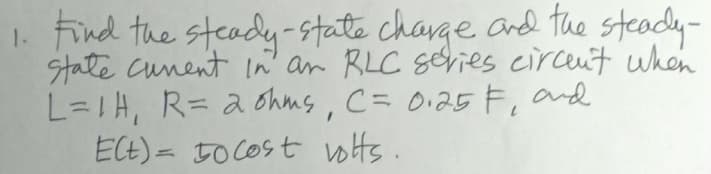 1. Find the steady-state charge and the steady-
state current in an RLC series circuit when
L=1H, R= 2 ohms, C= 0.25 F, and
E(t)= 50 cos t volts.